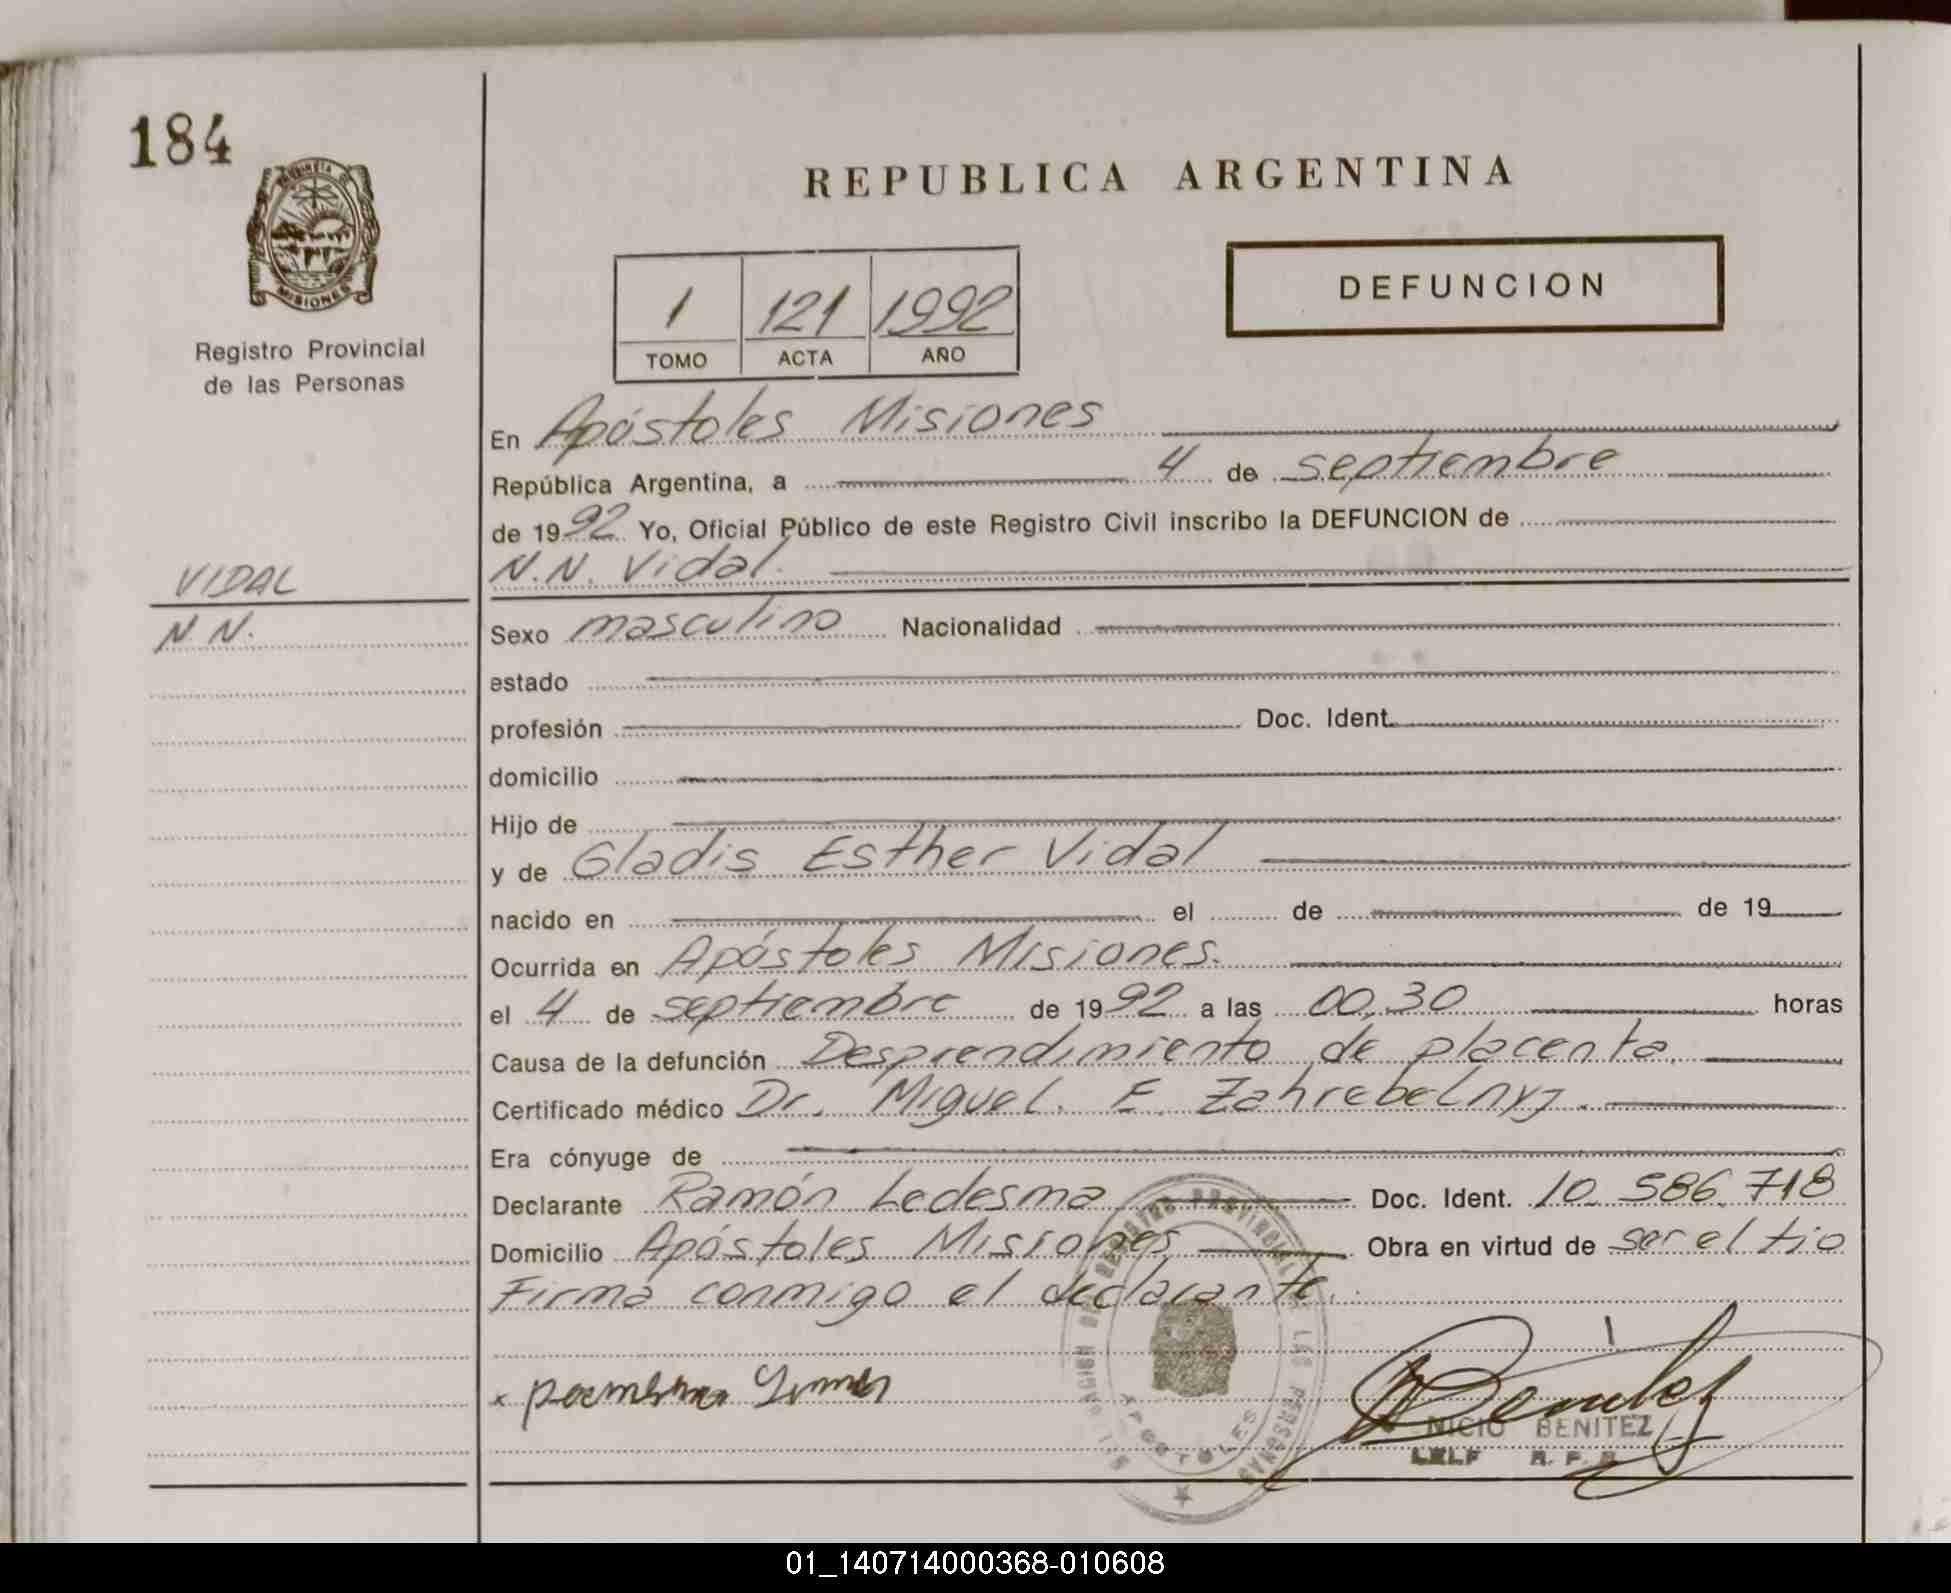 184
PROVINCIA DE
MISIONES
Registro Provincial
de las Personas
REPUBLICA ARGENTINA
1 121 1992
TOMO ACTA AÑO
DEFUNCION
En Apóstoles Misiones
República Argentina, a 4 de septiembre
de 1992 Yo, Oficial Público de este Registro Civil inscribo la DEFUNCION de
N.N. Vidal.
VIDAL
N N.
Sexo masculino Nacionalidad
estado
profesión Doc. Ident.
domicilio
Hijo de
y de Gladis Esther Vidal
nacido en el de de 19
Ocurrida en Apóstoles Misiones.
el 4 de septiembre de 1992 a las 00,30 horas
Causa de la defunción Desprendimiento de placenta.
Certificado médico Dr. Miguel. E. Zahrebelnyj.
Era cónyuge de
Declarante Ramón Ledesma Doc. Ident. 10.586.718
Domicilio Apóstoles Misiones Obra en virtud de ser el tio
Firma conmigo el declarante.
REGISTRO PROVINCIAL DE LAS PERSONAS
APOSTOLES
NICIO BENITEZ
R. P. P.
01_140714000368-010608